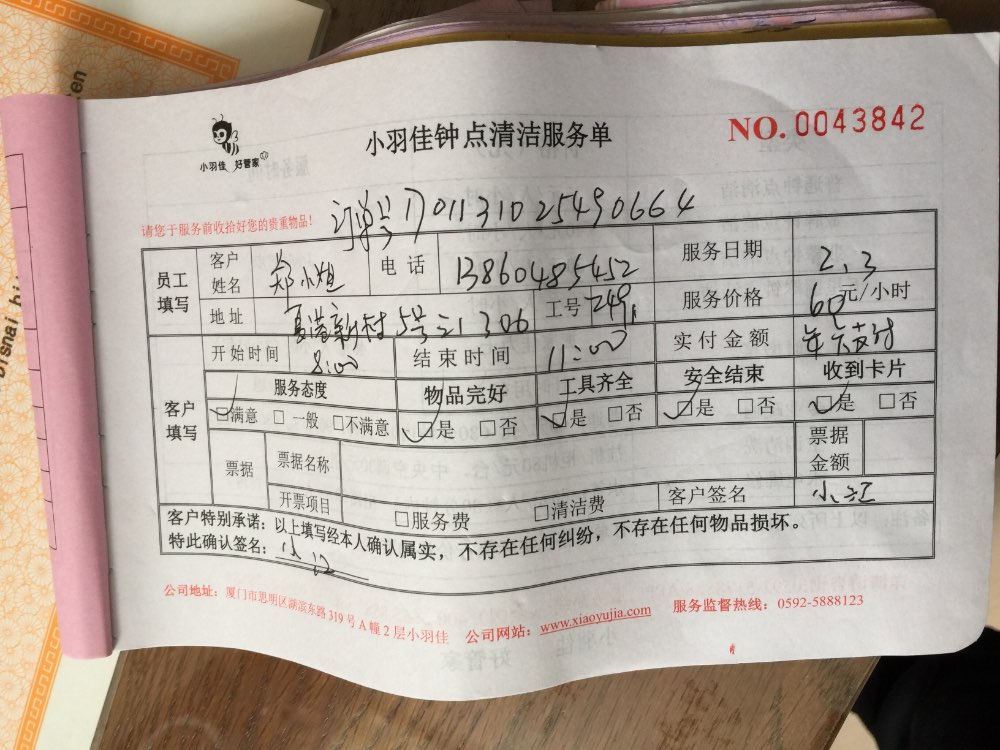 小羽佳 好管家
小羽佳钟点清洁服务单
NO. 0043842
请您于服务前收拾好您的贵重物品!
订单号 1701131025490664
员工填写 客户姓名 郑小姐 电话 13860485452 服务日期 2.3
地址 夏港新村5号之1 306 工号 服务价格 60元/小时
客户填写 开始时间 8:00 结束时间 11:00 实付金额 年卡支付
服务态度 物品完好 工具齐全 安全结束 收到卡片
☑满意 □一般 □不满意 ☑是 □否 ☑是 □否 ☑是 □否 ☑是 □否
票据 票据名称 票据金额
开票项目 □服务费 □清洁费 客户签名 小江
客户特别承诺:以上填写经本人确认属实,不存在任何纠纷,不存在任何物品损坏。
特此确认签名: 小江
公司地址:厦门市思明区湖滨东路319号A幢2层小羽佳 公司网站:www.xiaoyujia.com 服务监督热线:0592-5888123